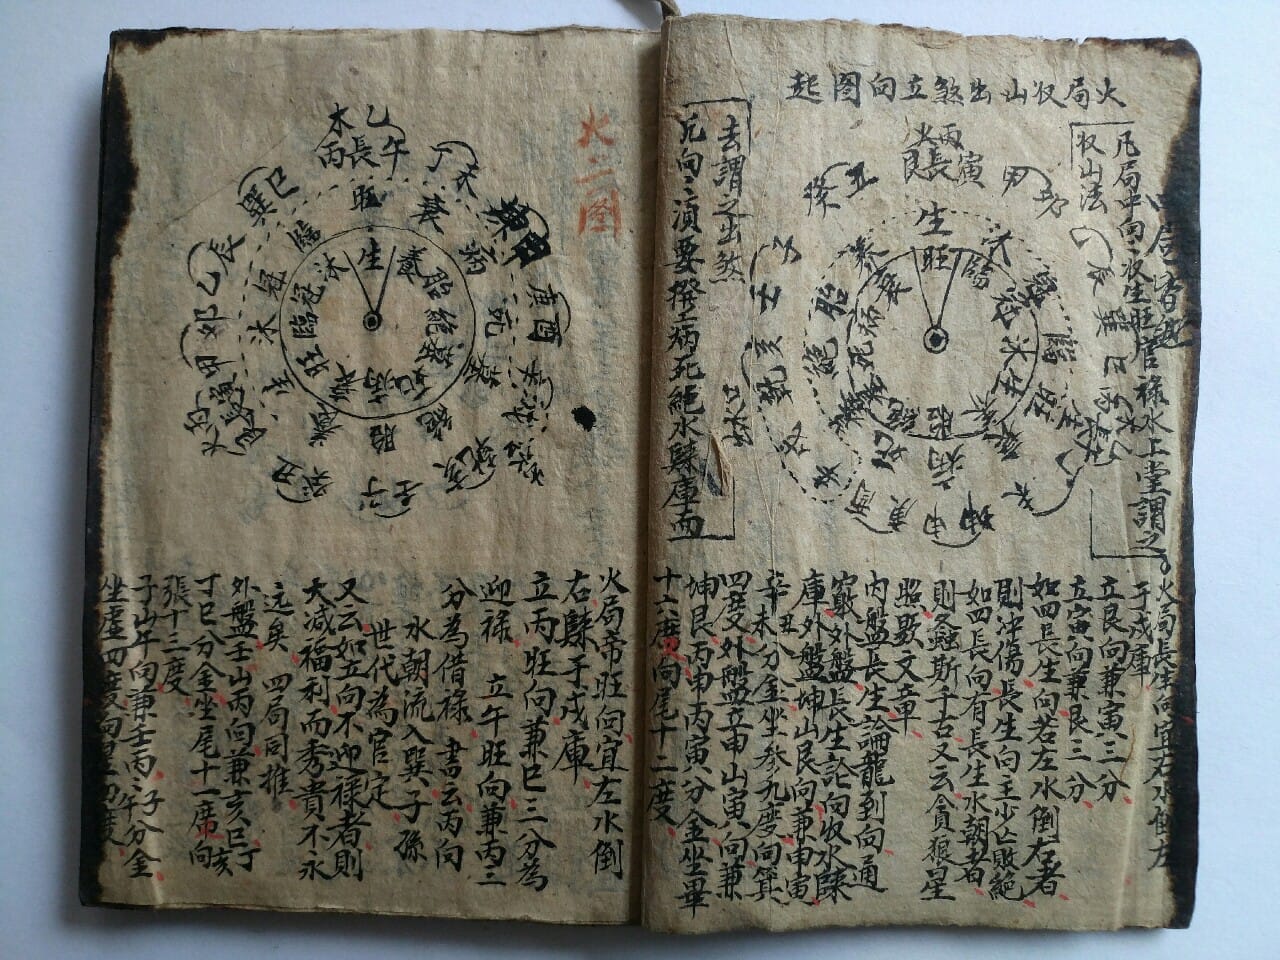 火局收山出煞立向图起
凡局中向收生旺官祿水上堂謂之
收山法
去謂之出煞
凡向須要撥病死絕水歸庫而
火丙
艮長寅
甲卯
癸丑
生
旺
火局長生向宜右水倒左
于戌庫
立艮向兼寅三分
立寅向兼艮二分
如四長生向若左水倒右者
則沖傷長生向主少亡敗絕
如四長向有長生水朝者
則螽斯千古又云貪狼星
照顯文章
內盤長生論龍到向通
竅外盤長生論向收水歸
庫外盤坤山艮向兼申寅
辛丑辛未分金坐參九度向箕
四度外盤立申山寅向兼
坤艮丙申丙寅分金坐畢
十六度向尾十二度
火二圖
木乙
丙長午
丁未
坤申
庚酉
巽巳
乙辰
甲卯
癸丑
壬子
乾亥
旺
衰
病
死
墓
絕
胎
養
生
沐
冠
臨
火局帝旺向宜左水倒
右歸于戌庫
立丙旺向兼巳三分為
迎祿 立午旺向兼丙三
分為借祿 書云丙向
水朝流入巽子孫
世代為官定
又云如立向不迎祿者則
大減福利而秀貴不永
远矣 四局同推
外盤壬山丙向兼亥巳丁亥
丁巳分金坐尾十一度向
張十三度
子山午向兼壬丙丙子丙午分金
坐虛四度向星四度